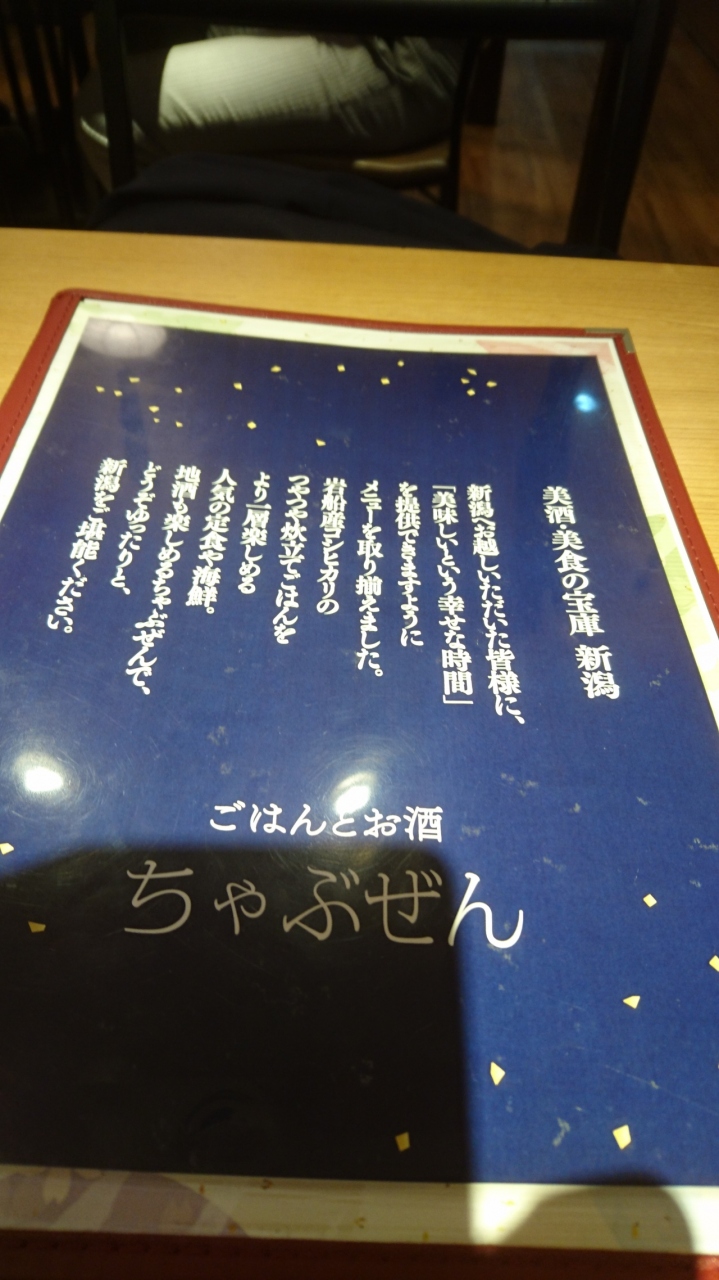 美酒・美食の宝庫 新潟
新潟へお越しいただいた皆様に、
「美味しいという幸せな時間」
を提供できますように
メニューを取り揃えました。
岩船産コシヒカリの
つやつや炊立てごはんを
より一層楽しめる
人気の定食や海鮮。
地酒も楽しめるちゃぶぜんで、
どうぞゆったりと、
新潟をご堪能ください。
ごはんとお酒
ちゃぶぜん